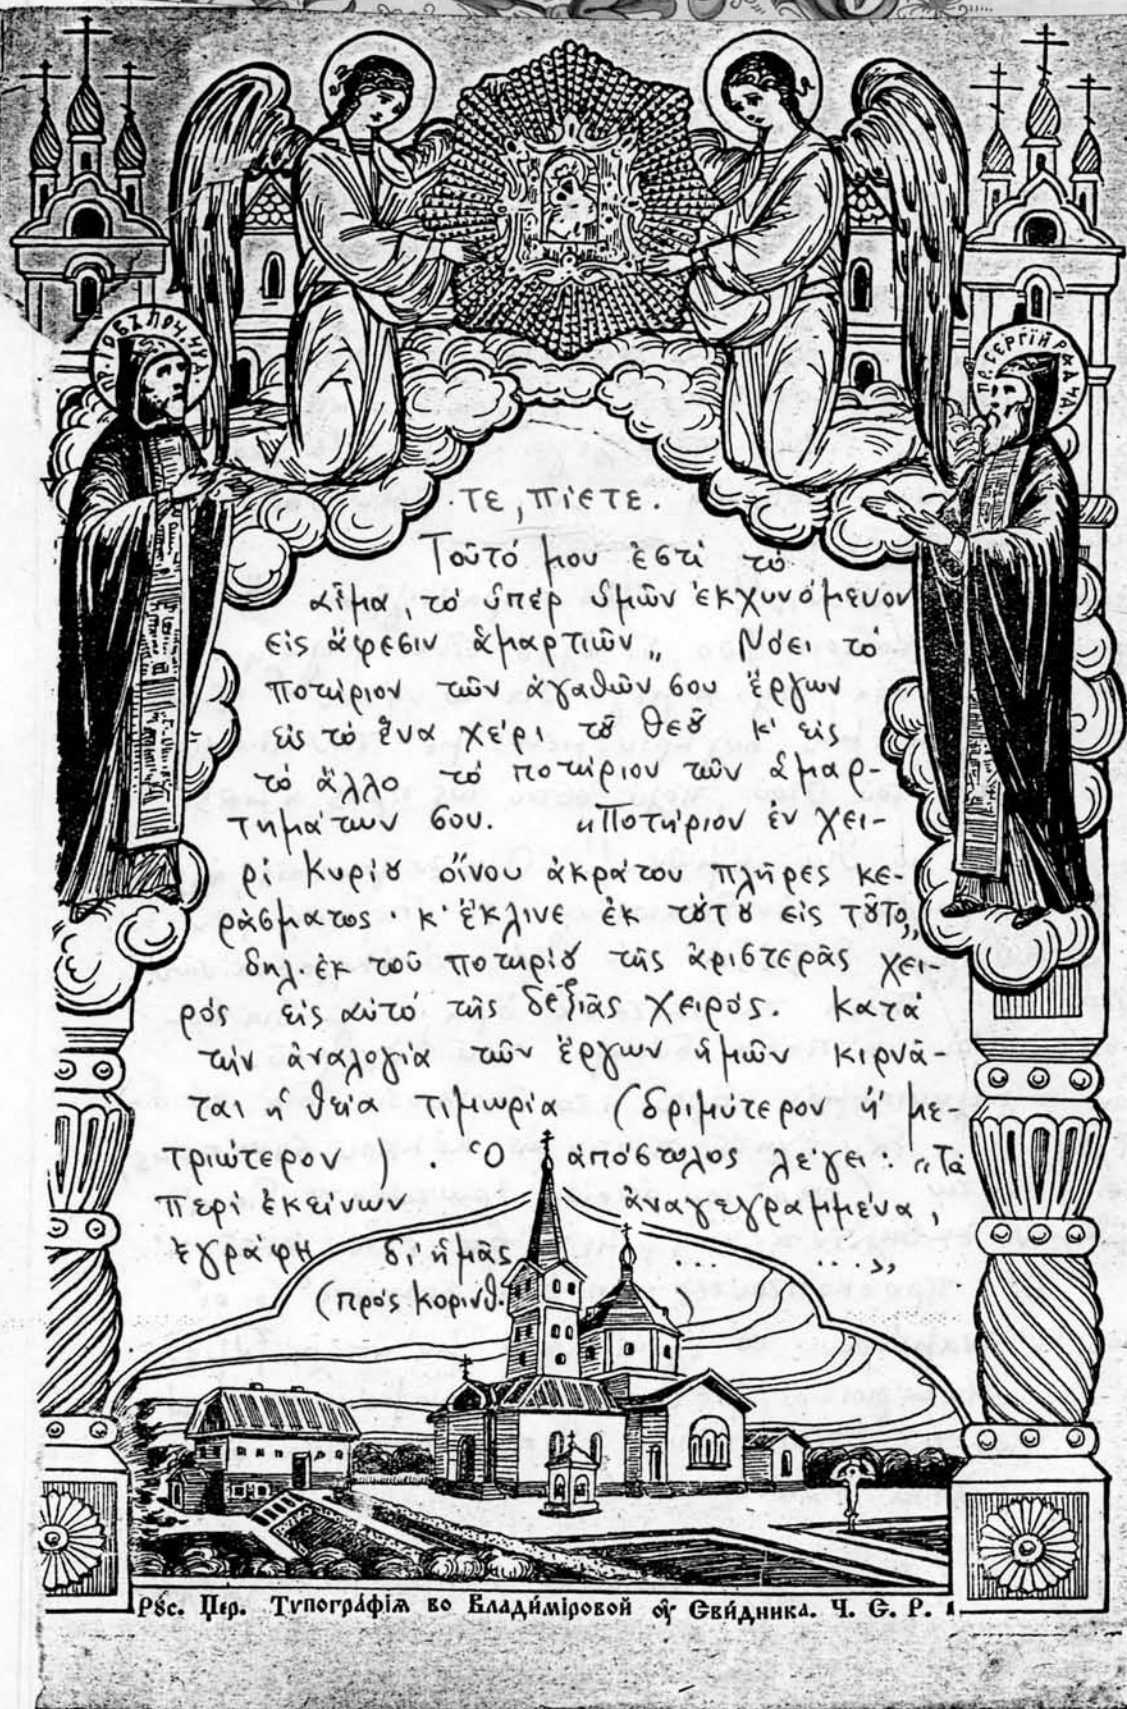 П. ІОВЪ ПОЧ ЧУД.
ПР. СЕРГІЙ РАД ЧУ.
.τε, πίετε.
Τοῦτό μου ἐστί τό
αἷμα, τό ὑπέρ ὑμῶν ἐκχυνόμενον
εἰς ἄφεσιν ἁμαρτιῶν„ Νόει τό
ποτήριον τῶν ἀγαθῶν σου ἔργων
εἰς τό ἕνα χέρι τȣ͂ Θεȣ͂ κ' εἰς
τό ἄλλο τό ποτήριον τῶν ἁμαρ-
τημάτων σου. „Ποτήριον ἐν χει-
ρί Κυρίȣ οἴνου ἀκράτου πλῆρες κε-
ράσματος· κ' ἔκλινε ἐκ τȣ́τȣ εἰς τȣ͂το„
δηλ. ἐκ τοῦ ποτηρίȣ τῆς ἀριστερᾶς χει-
ρός εἰς αὐτό τῆς δεξιᾶς χειρός. Κατά
τήν ἀναλογία τῶν ἔργων ἡμῶν κιρνᾶ-
ται ἡ θεία τιμωρία (δριμύτερον ἤ με-
τριώτερον). Ὁ ἀπόστολος λέγει: „Τά
περί ἐκείνων ἀναγεγραμμένα,
ἐγράφη δι' ἡμᾶς ... ...„
(πρός Κορινθ. )
Рꙋ́с. Пер. Тѵпогра́фїѧ во Влади́міровой ᲂу҆ Сви́дника. Ч. С. Р.